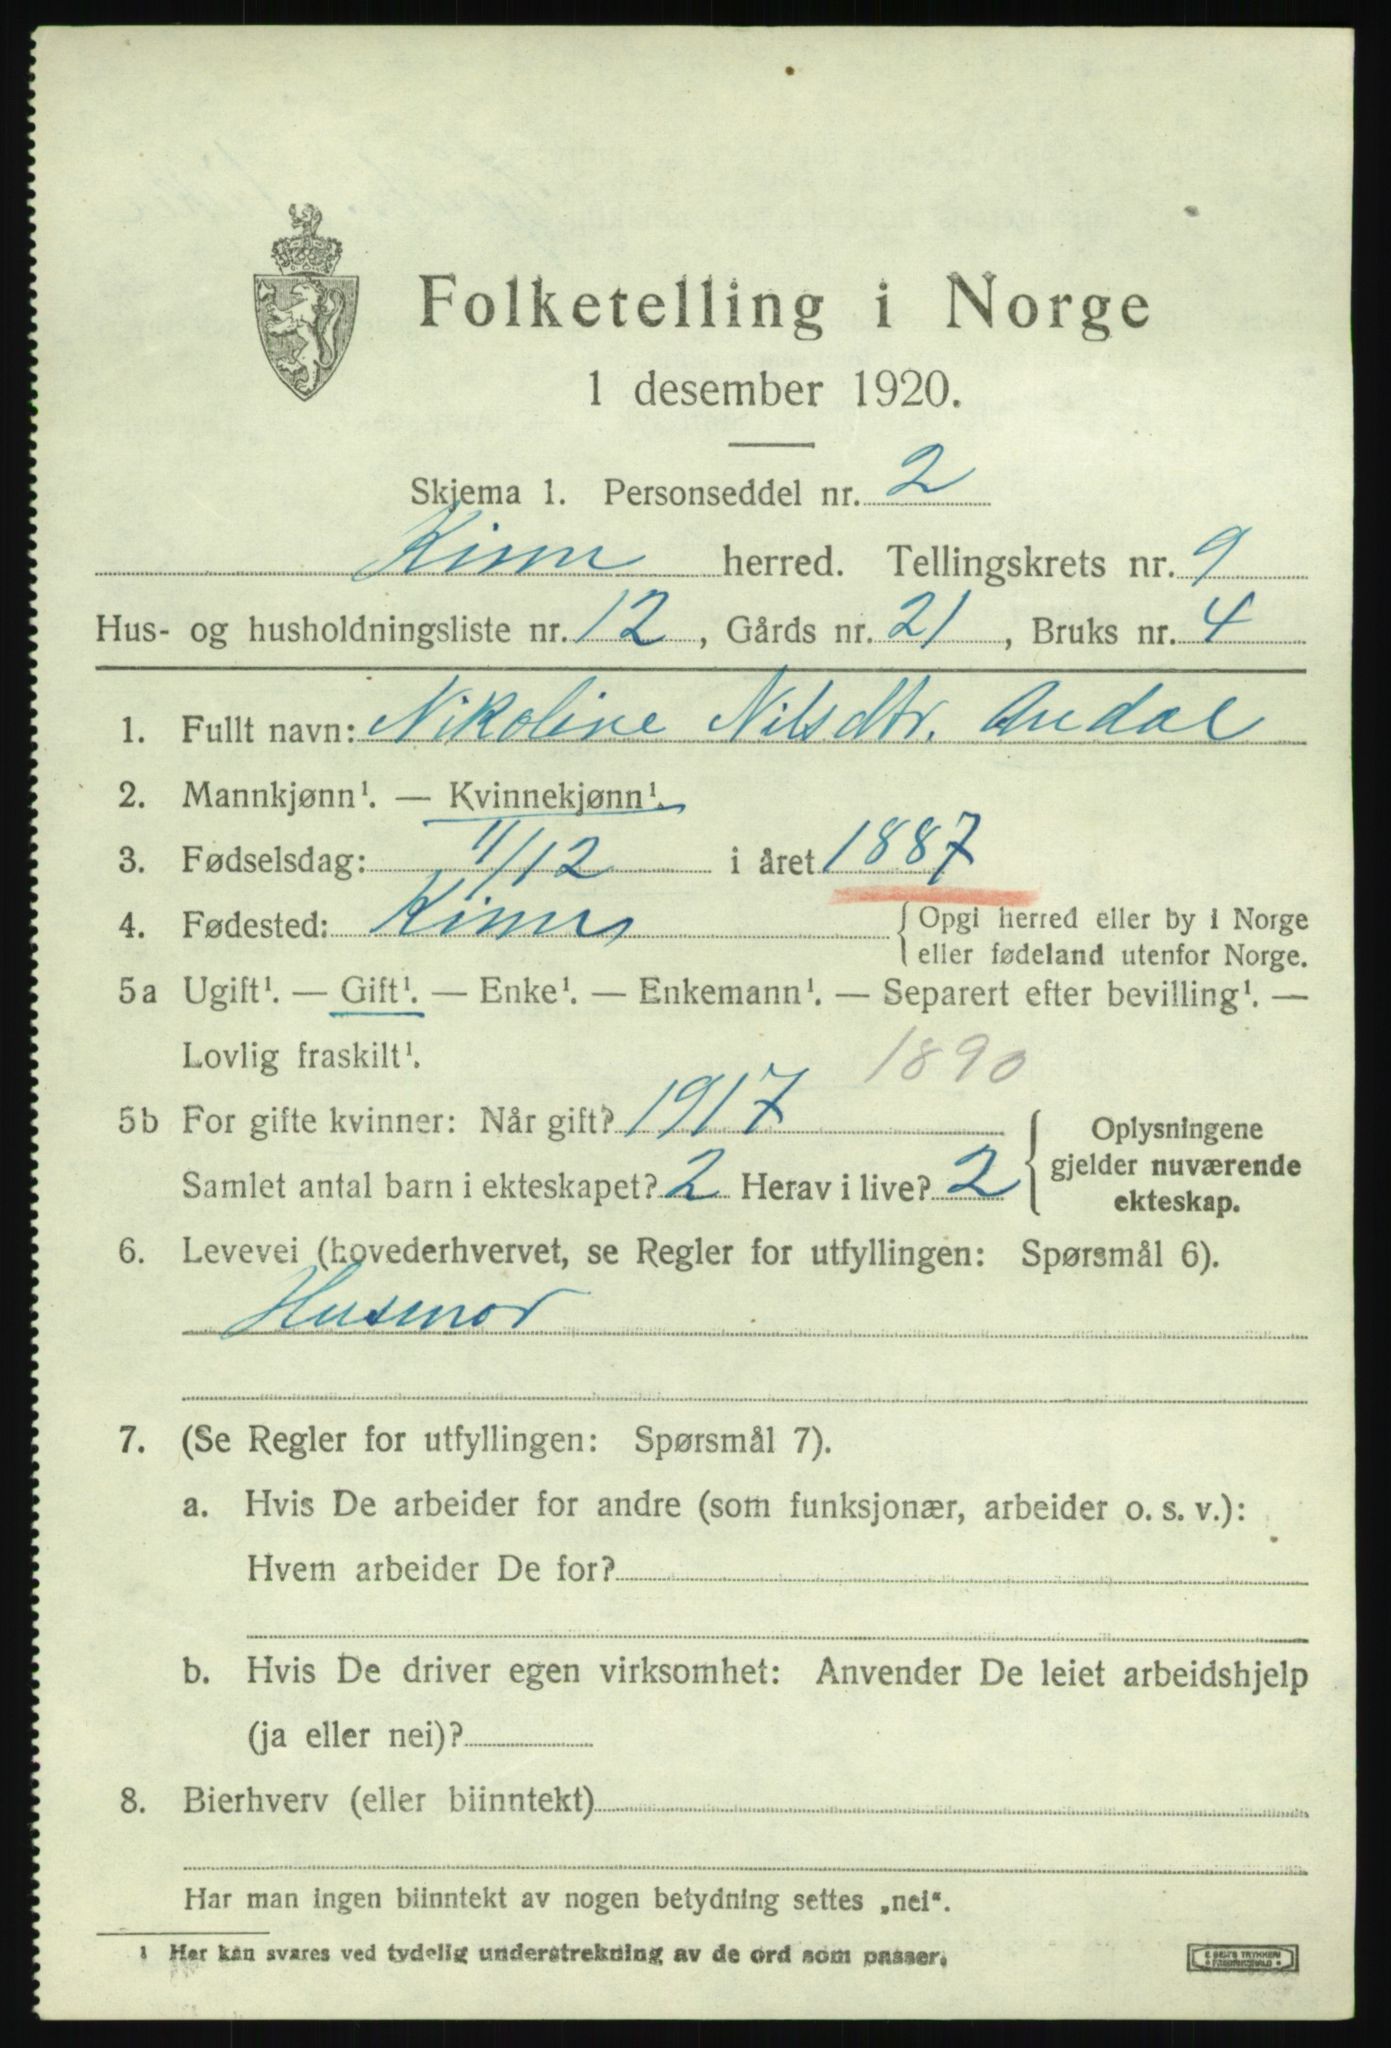 Folketelling i Norge
1 desember 1920.
Skjema 1. Personseddel nr. 2
Kinn herred. Tellingskrets nr. 9
Hus- og husholdningsliste nr. 12, Gårds nr. 21, Bruks nr. 4
1. Fullt navn: Nikoline Nilsdtr. Andal
2. Mannkjønn¹. — Kvinnekjønn¹.
3. Fødselsdag: 11/12 i året 1887
4. Fødested: Kinn {Opgi herred eller by i Norge
eller fødeland utenfor Norge.
5a Ugift¹. — Gift¹. — Enke¹. — Enkemann¹. — Separert efter bevilling¹. —
Lovlig fraskilt¹. 1890
5b For gifte kvinner: Når gift? 1917
Samlet antal barn i ekteskapet? 2 Herav i live? 2
{Oplysningene
gjelder nuværende
ekteskap.
6. Levevei (hovederhvervet, se Regler for utfyllingen: Spørsmål 6).
Husmor
7. (Se Regler for utfyllingen: Spørsmål 7).
a. Hvis De arbeider for andre (som funksjonær, arbeider o. s. v.):
Hvem arbeider De for?
b. Hvis De driver egen virksomhet: Anvender De leiet arbeidshjelp
(ja eller nei)?
8. Bierhverv (eller biinntekt)
Har man ingen biinntekt av nogen betydning settes „nei“.
¹ Her kan svares ved tydelig understrekning av de ord som passer.